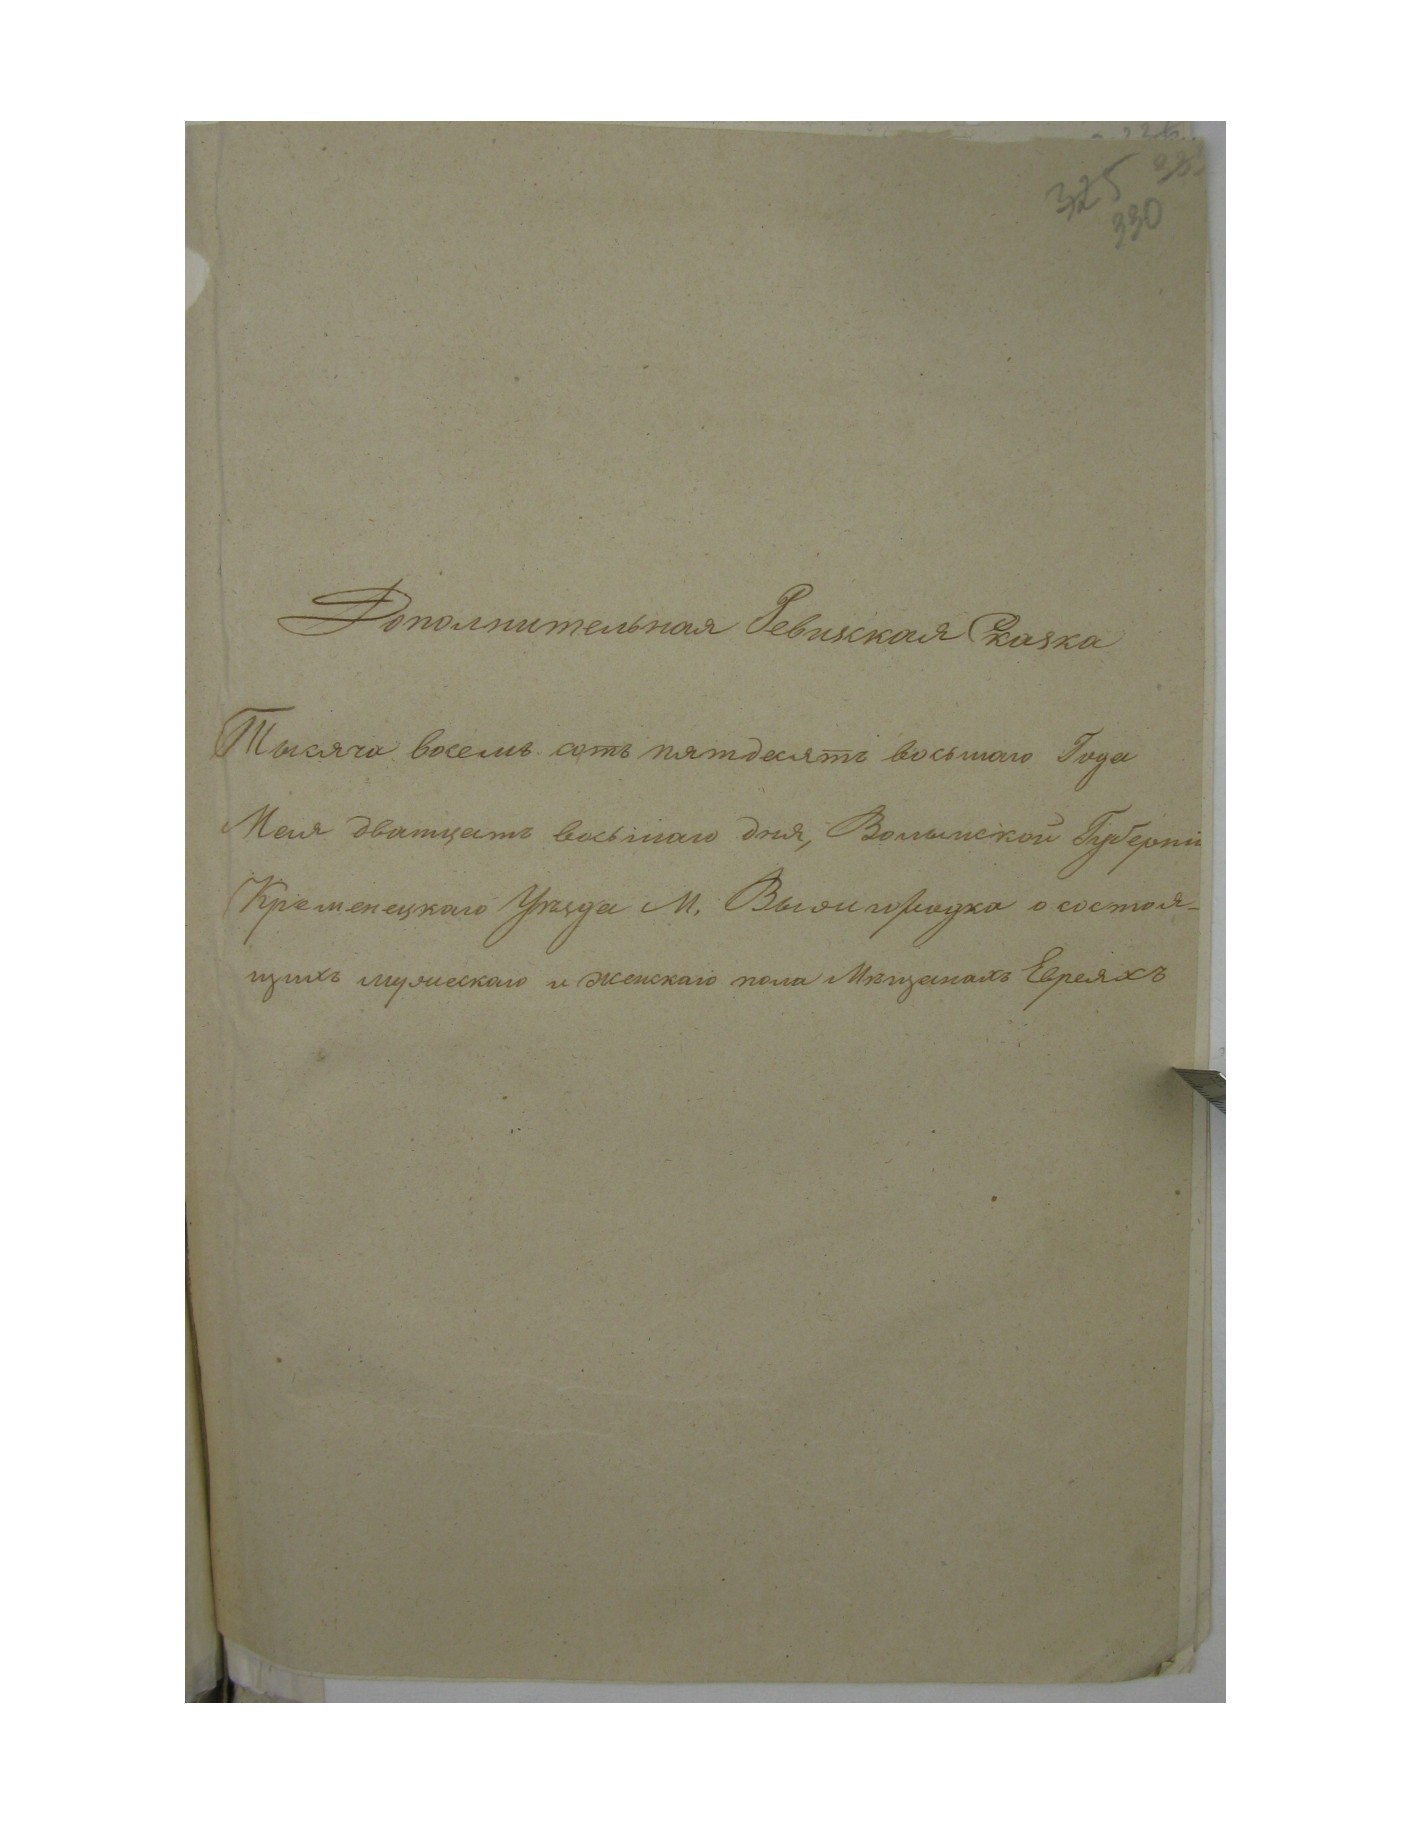 325
330
Дополнительная Ревизская Сказка
Тысяча восемь сотъ пятдесятъ восьмаго Года
Мая дватцать восьмаго дня, Волынской Губерніи
Кременецкаго Уѣзда М. Вышгородка о состоя-
щихъ мужескаго и женскаго пола Мѣщанахъ Евреяхъ